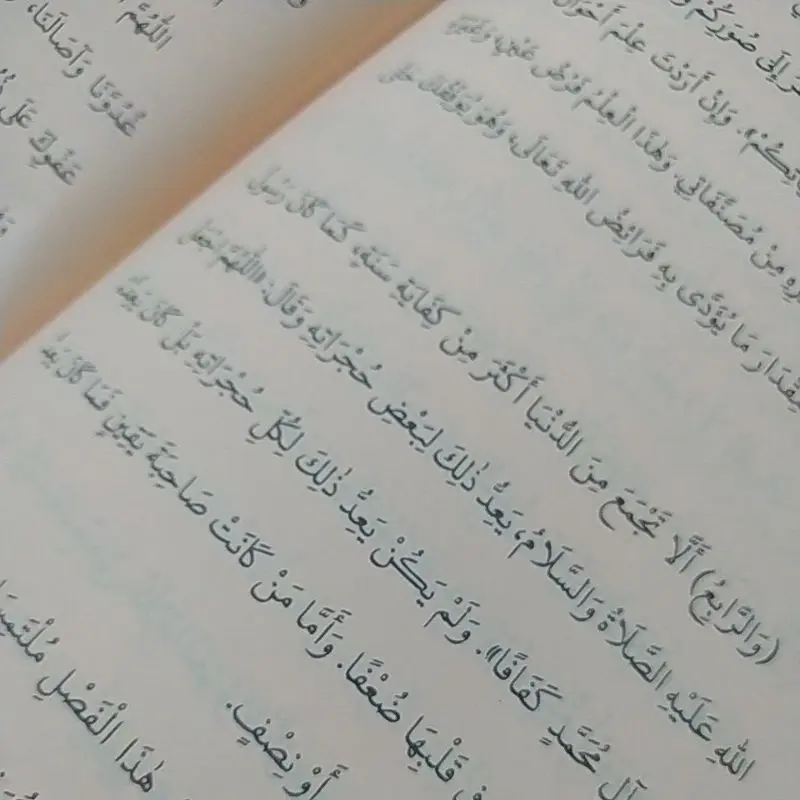 إِلَى صُوَرِكُمْ
وَإِنْ أَرَدْتَ عِلْمَ أَحْوَالِ
مِنْ مُصَنَّفَاتِي. وَهٰذَا الْعِلْمُ فَرْضُ عَيْنٍ، وَغَيْرُهُ
مِقْدَارَ مَا يُؤَدَّى بِهِ فَرَائِضُ اللهِ تَعَالَى، وَهُوَ
(وَالرَّابِعُ) أَلَّا تَجْمَعَ مِنَ الدُّنْيَا أَكْثَرَ مِنْ كِفَايَةِ سَنَةٍ، كَمَا كَانَ رَسُولُ
اللهِ عَلَيْهِ الصَّلَاةُ وَالسَّلَامُ، يَعِدُّ ذٰلِكَ لِبَعْضِ حُجُرَاتِهِ وَقَالَ: «اللّٰهُمَّ اجْعَلْ
آلِ مُحَمَّدٍ كَفَافًا». وَلَمْ يَكُنْ يَعِدُّ ذٰلِكَ لِكُلِّ حُجُرَاتِهِ بَلْ كَانَ يَعِدُّهُ
قَلْبِهَا ضُعْفًا. وَأَمَّا مَنْ كَانَتْ صَاحِبَةَ يَقِينٍ فَمَا كَانَ يَعِدُّ
أَوْ نِصْفٍ.
هٰذَا الْفَصْلِ
اللّٰهُمَّ
غُدُوَّنَا وَآصَالَنَا،
عَفْوِكَ عَلَى